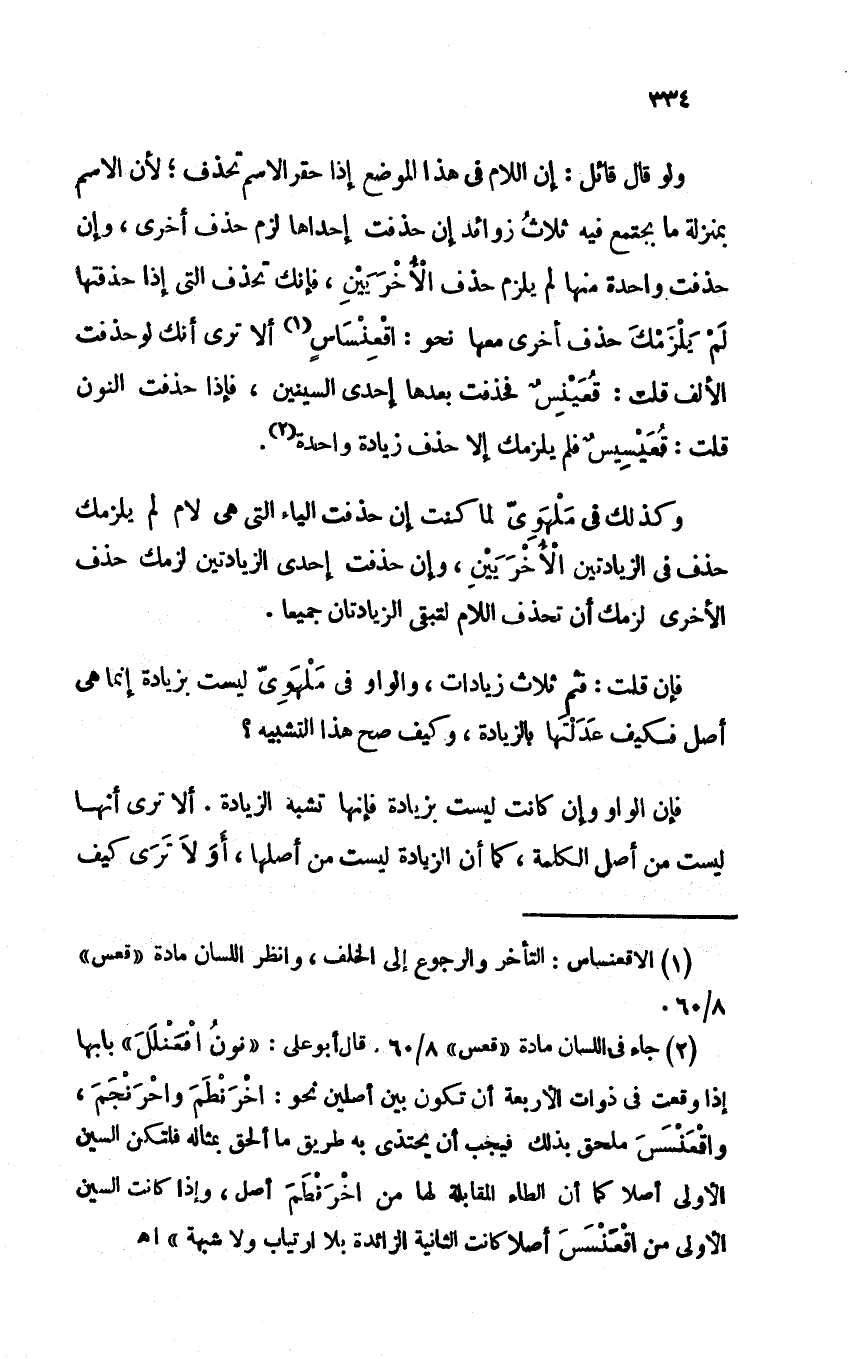 ٣٣٤
ولو قال قائل : إن اللام فى هذا الموضع إذا حقر الاسم تحذف ؛ لأن الاسم
بمنزلة ما يجتمع فيه ثلاثُ زوائد إن حذفت إحداها لزم حذف أخرى ، وإن
حذفت واحدة منها لم يلزم حذف الْأُخْرَيَيْنِ ، فإنك تحذف التى إذا حذفتها
لَمْ يَلْزَمْكَ حذف أخرى معها نحو : اقْعِنْسَاسٍ(١) ألا ترى أنك لو حذفت
الألف قلت : قُعَيْنِسٌ فحذفت بعدها إحدى السينين ، فإذا حذفت النون
قلت : قُعَيْسِيسٌ فلم يلزمك إلا حذف زيادة واحدة(٢) .
وكذلك فى مَلْهَوِىّ لما كنت إن حذفت الياء التى هى لام لم يلزمك
حذف فى الزيادتين الْأُخْرَيَيْنِ ، وإن حذفت إحدى الزيادتين لزمك حذف
الأخرى لزمك أن تحذف اللام لتبقى الزيادتان جميعا .
فإن قلت : فثم ثلاث زيادات ، والواو فى مَلْهَوِىّ ليست بزيادة إنما هى
أصل فكيف عَدَلْتَها بالزيادة ، وكيف صح هذا التشبيه ؟
فإن الواو وإن كانت ليست بزيادة فإنها تشبه الزيادة . ألا ترى أنها
ليست من أصل الكلمة ، كما أن الزيادة ليست من أصلها ، أَوَ لاَ تَرَى كيف
(١) الاقعنساس : التأخر والرجوع إلى الخلف ، وانظر اللسان مادة «قعس»
٦٠/٨ .
(٢) جاء فى اللسان مادة «قعس» ٦٠/٨ . قال أبو على : «نونُ افْعَنْلَلَ» بابها
إذا وقعت فى ذوات الأربعة أن تكون بين أصلين نحو : اخْرَنْطَمَ واحْرَنْجَمَ ،
واقْعَنْسَسَ ملحق بذلك فيجب أن يحتذى به طريق ما ألحق بمثاله فلتكن السين
الأولى أصلا كما أن الطاء المقابلة لها من اخْرَنْطَمَ أصل ، وإذا كانت السين
الأولى من اقْعَنْسَسَ أصلا كانت الثانية الزائدة بلا ارتياب ولا شبهة » اه